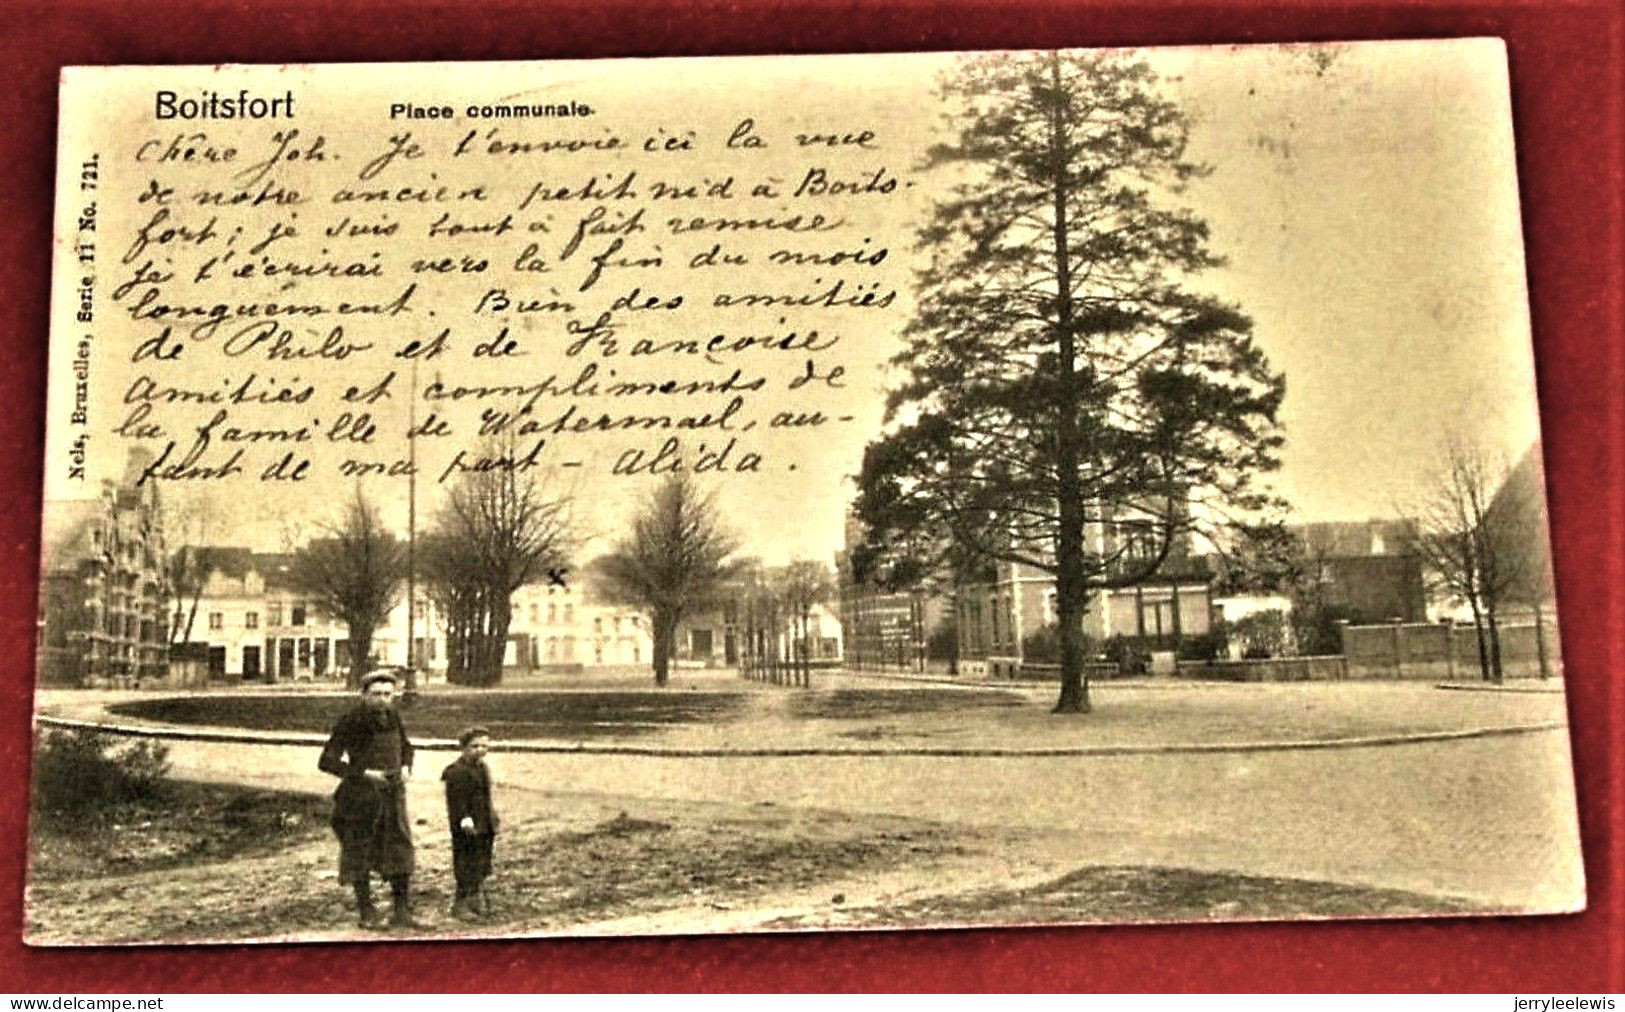 Boitsfort Place communale.
Chère Joh. Je t'envoie ici la vue
de notre ancien petit nid à Boits-
fort; je suis tout à fait remise
je t'écrirai vers la fin du mois
longuement. Bien des amitiés
de Philo et de Françoise
Amitiés et compliments de
la famille de Watermael, au-
tant de ma part – Alida.
Nels, Bruxelles, Serie 11 No. 721.
www.delcampe.net
jerryleelewis